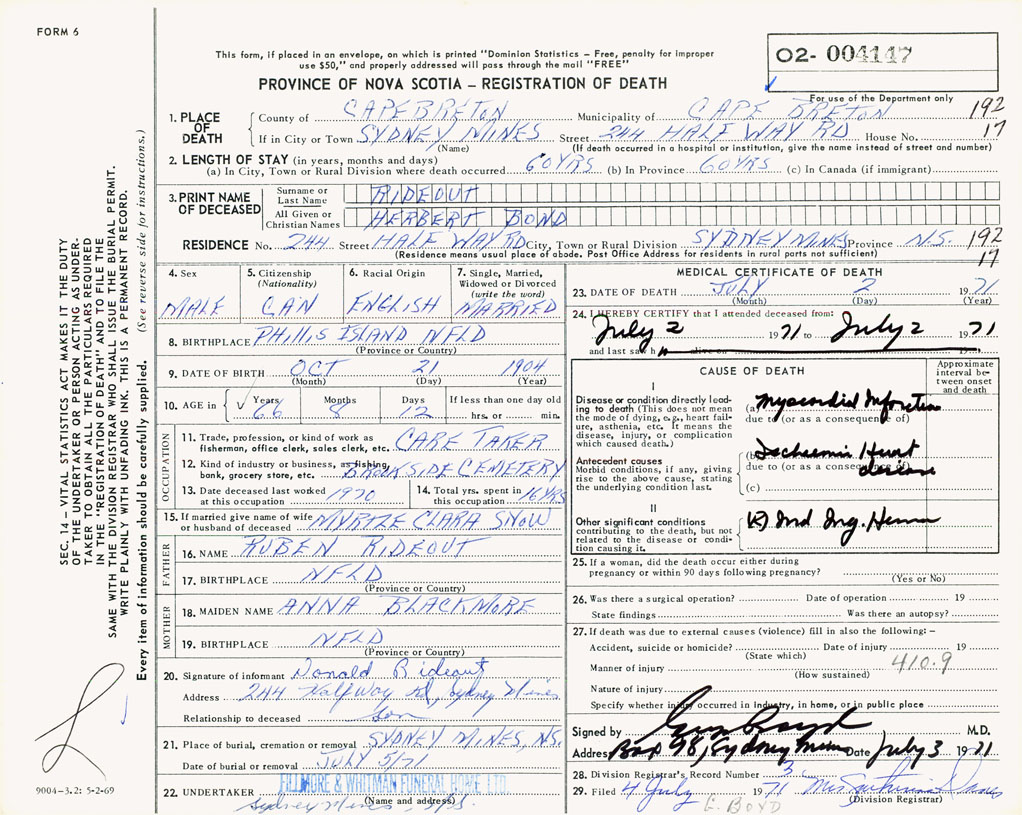 FORM 6
This form, if placed in an envelope, on which is printed "Dominion Statistics – Free, penalty for improper
use $50," and properly addressed will pass through the mail "FREE"
02- 004147
PROVINCE OF NOVA SCOTIA – REGISTRATION OF DEATH
For use of the Department only
1. PLACE OF DEATH
County of CAPE BRETON Municipality of CAPE BRETON 192
If in City or Town SYDNEY MINES Street 244 HALF WAY RD House No. 17
(Name) (If death occurred in a hospital or institution, give the name instead of street and number)
2. LENGTH OF STAY (in years, months and days)
(a) In City, Town or Rural Division where death occurred 60 YRS (b) In Province 60 YRS (c) In Canada (if immigrant)
3. PRINT NAME OF DECEASED
Surname or Last Name RIDEOUT
All Given or Christian Names HERBERT BOND
RESIDENCE No. 244 Street HALF WAY RD City, Town or Rural Division SYDNEY MINES Province N.S. 192
(Residence means usual place of abode. Post Office Address for residents in rural parts not sufficient) 17
4. Sex MALE
5. Citizenship (Nationality) CAN
6. Racial Origin ENGLISH
7. Single, Married, Widowed or Divorced (write the word) MARRIED
8. BIRTHPLACE PHILLIS ISLAND NFLD
(Province or Country)
9. DATE OF BIRTH OCT 21 1904
(Month) (Day) (Year)
10. AGE in Years 66 Months 8 Days 12 If less than one day old hrs. or min.
OCCUPATION
11. Trade, profession, or kind of work as fisherman, office clerk, sales clerk, etc. CARE TAKER
12. Kind of industry or business, as fishing, bank, grocery store, etc. BROOKSIDE CEMETERY
13. Date deceased last worked at this occupation 1970
14. Total yrs. spent in this occupation 16 YRS
15. If married give name of wife or husband of deceased MYRTLE CLARA SNOW
FATHER
16. NAME RUBEN RIDEOUT
17. BIRTHPLACE NFLD
(Province or Country)
MOTHER
18. MAIDEN NAME ANNA BLACKMORE
19. BIRTHPLACE NFLD
(Province or Country)
20. Signature of informant Donald Rideout
Address 244 Halfway Rd, Sydney Mines
Relationship to deceased Son
21. Place of burial, cremation or removal SYDNEY MINES, NS.
Date of burial or removal JULY 5/71
22. UNDERTAKER FILLMORE & WHITMAN FUNERAL HOME LTD.
(Name and address)
Sydney Mines, N.S.
MEDICAL CERTIFICATE OF DEATH
23. DATE OF DEATH JULY 2 1971
(Month) (Day) (Year)
24. I HEREBY CERTIFY that I attended deceased from:
July 2 1971 to July 2 1971
and last saw h alive on 19
CAUSE OF DEATH
Approximate interval between onset and death
I
Disease or condition directly leading to death (This does not mean the mode of dying, e.g., heart failure, asthenia, etc. It means the disease, injury, or complication which caused death.)
(a) Myocardial Infarction
due to (or as a consequence of)
Antecedent causes
Morbid conditions, if any, giving rise to the above cause, stating the underlying condition last.
(b) Ischaemic Heart disease
due to (or as a consequence of)
(c)
II
Other significant conditions contributing to the death, but not related to the disease or condition causing it.
Ind Ing. Hernia
25. If a woman, did the death occur either during
pregnancy or within 90 days following pregnancy?
(Yes or No)
26. Was there a surgical operation? Date of operation 19
State findings Was there an autopsy?
27. If death was due to external causes (violence) fill in also the following: –
Accident, suicide or homicide? Date of injury 19
(State which) 410.9
Manner of injury
(How sustained)
Nature of injury
Specify whether injury occurred in Industry, in home, or in public place
Signed by M.D.
Address Box 98, Sydney Mines Date July 3 1971
28. Division Registrar's Record Number 3
29. Filed 4 July 1971 Mrs
(Division Registrar)
E. BOYD
SEC. 14 – VITAL STATISTICS ACT MAKES IT THE DUTY
OF THE UNDERTAKER OR PERSON ACTING AS UNDER-
TAKER TO OBTAIN ALL THE PARTICULARS REQUIRED
IN THE "REGISTRATION OF DEATH" AND TO FILE THE
SAME WITH THE DIVISION REGISTRAR WHO SHALL ISSUE THE BURIAL PERMIT.
WRITE PLAINLY WITH UNFADING INK. THIS IS A PERMANENT RECORD.
Every item of information should be carefully supplied. (See reverse side for instructions.)
9004-3.2: 5-2-69